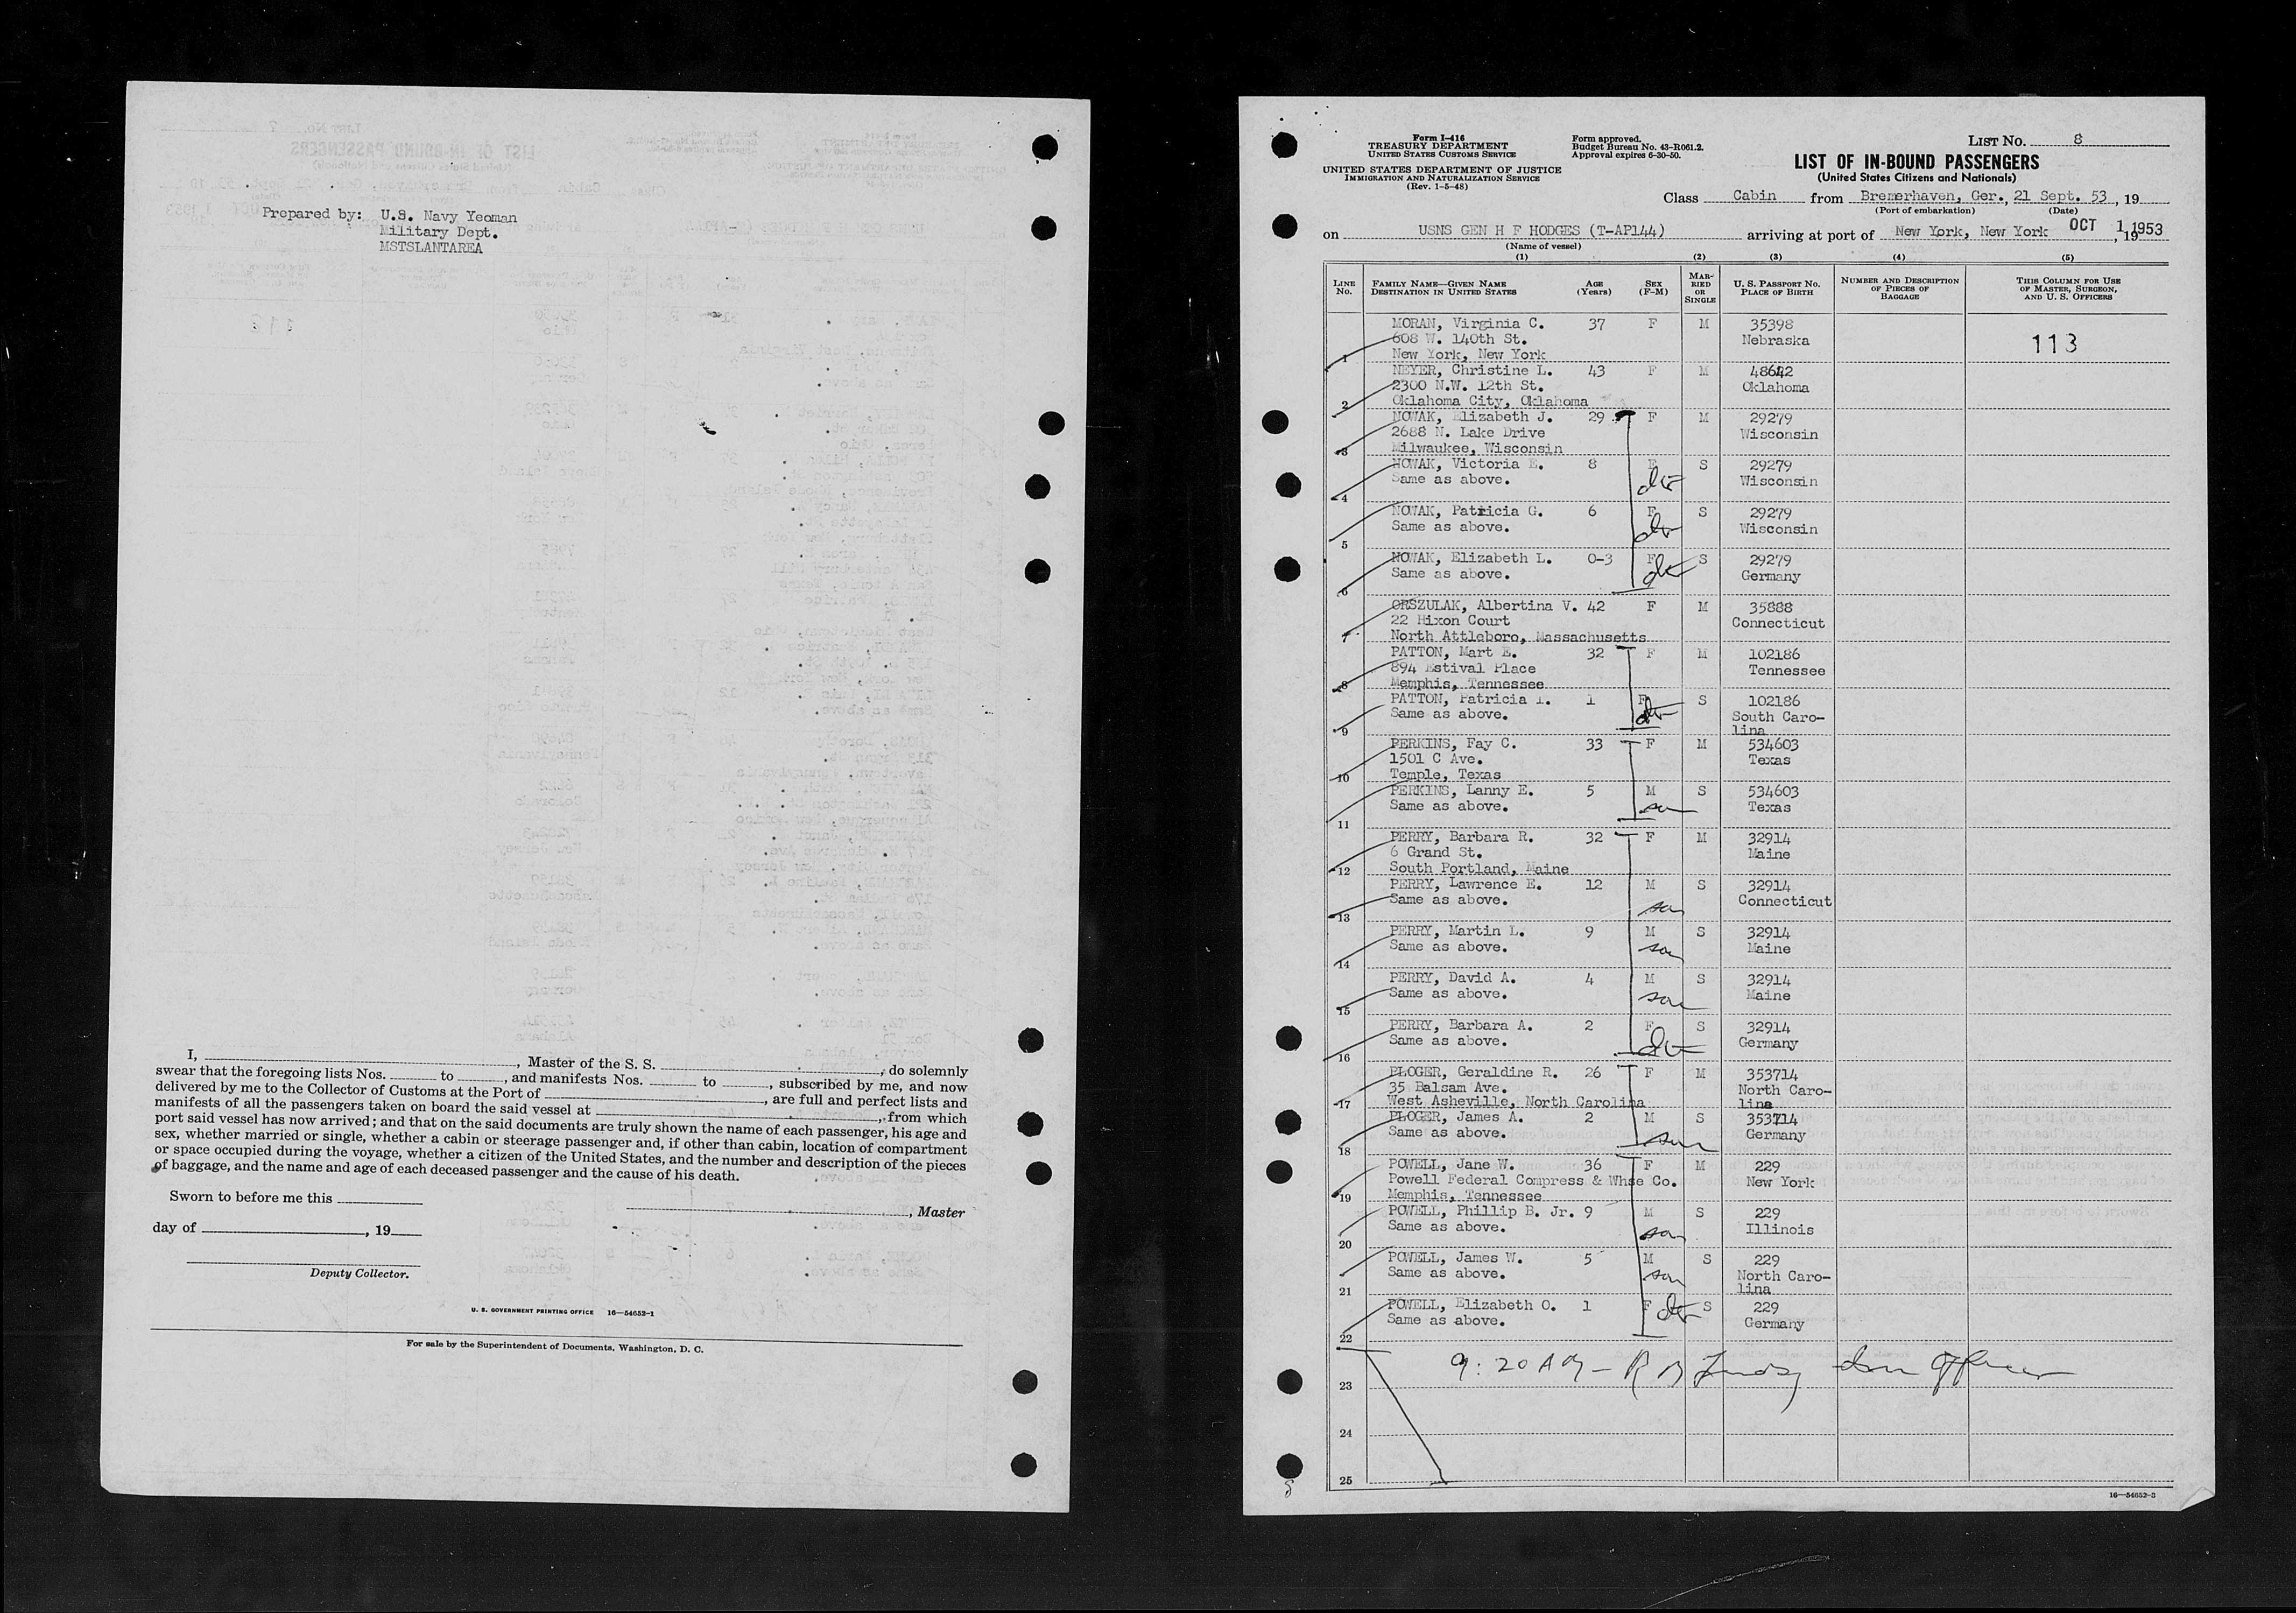 Prepared by: U.S. Navy Yeoman
Military Dept.
MSTSLANTAREA
I, , Master of the S. S. , do solemnly
swear that the foregoing lists Nos. to , and manifests Nos. to , subscribed by me, and now
delivered by me to the Collector of Customs at the Port of , are full and perfect lists and
manifests of all the passengers taken on board the said vessel at , from which
port said vessel has now arrived; and that on the said documents are truly shown the name of each passenger, his age and
sex, whether married or single, whether a cabin or steerage passenger and, if other than cabin, location of compartment
or space occupied during the voyage, whether a citizen of the United States, and the number and description of the pieces
of baggage, and the name and age of each deceased passenger and the cause of his death.
Sworn to before me this
, Master
day of , 19
Deputy Collector.
U. S. GOVERNMENT PRINTING OFFICE 16—54652-1
For sale by the Superintendent of Documents, Washington, D. C.
Form I-416
TREASURY DEPARTMENT
UNITED STATES CUSTOMS SERVICE
UNITED STATES DEPARTMENT OF JUSTICE
IMMIGRATION AND NATURALIZATION SERVICE
(Rev. 1-5-48)
Form approved.
Budget Bureau No. 43-R061.2.
Approval expires 6-30-50.
LIST NO. 8
LIST OF IN-BOUND PASSENGERS
(United States Citizens and Nationals)
Class Cabin from Bremerhaven, Ger., 21 Sept. 53, 19
(Port of embarkation) (Date)
on USNS GEN H F HODGES (T-AP144) arriving at port of New York, New York OCT 1, 1953
(Name of vessel)
(1) (2) (3) (4) (5)
LINE NO. FAMILY NAME—GIVEN NAME DESTINATION IN UNITED STATES AGE (Years) SEX (F-M) MARRIED OR SINGLE U. S. PASSPORT NO. PLACE OF BIRTH NUMBER AND DESCRIPTION OF PIECES OF BAGGAGE THIS COLUMN FOR USE OF MASTER, SURGEON, AND U. S. OFFICERS
MORAN, Virginia C. 37 F M 35398
608 W. 140th St. Nebraska 113
1 New York, New York
NEYER, Christine L. 43 F M 48642
2300 N.W. 12th St. Oklahoma
2 Oklahoma City, Oklahoma
NOWAK, Elizabeth J. 29 F M 29279
2688 N. Lake Drive Wisconsin
3 Milwaukee, Wisconsin
NOWAK, Victoria E. 8 F S 29279
Same as above. dtr Wisconsin
4
NOWAK, Patricia G. 6 F S 29279
Same as above. dtr Wisconsin
5
NOWAK, Elizabeth L. 0-3 F dtr S 29279
Same as above. Germany
6
ORSZULAK, Albertina V. 42 F M 35888
22 Hixon Court Connecticut
7 North Attleboro, Massachusetts
PATTON, Mart E. 32 F M 102186
894 Estival Place Tennessee
8 Memphis, Tennessee
PATTON, Patricia I. 1 F S 102186
Same as above. dtr South Caro-
9 lina
PERKINS, Fay C. 33 F M 534603
1501 C Ave. Texas
10 Temple, Texas
PERKINS, Lanny E. 5 M S 534603
Same as above. son Texas
11
PERRY, Barbara R. 32 F M 32914
6 Grand St. Maine
12 South Portland, Maine
PERRY, Lawrence E. 12 M S 32914
Same as above. son Connecticut
13
PERRY, Martin L. 9 M S 32914
Same as above. son Maine
14
PERRY, David A. 4 M S 32914
Same as above. son Maine
15
PERRY, Barbara A. 2 F S 32914
Same as above. dtr Germany
16
PLOGER, Geraldine R. 26 F M 353714
35 Balsam Ave. North Caro-
17 West Asheville, North Carolina lina
PLOGER, James A. 2 M S 353714
Same as above. son Germany
18
POWELL, Jane W. 36 F M 229
Powell Federal Compress & Whse Co. New York
19 Memphis, Tennessee
POWELL, Phillip B. Jr. 9 M S 229
Same as above. son Illinois
20
POWELL, James W. 5 M S 229
Same as above. son North Caro-
21 lina
POWELL, Elizabeth O. 1 F dtr S 229
Same as above. Germany
22
9:20 AM - R Officer
23
24
25
16—54652-3